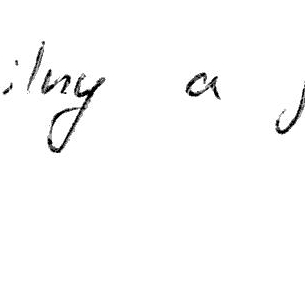 ilny a